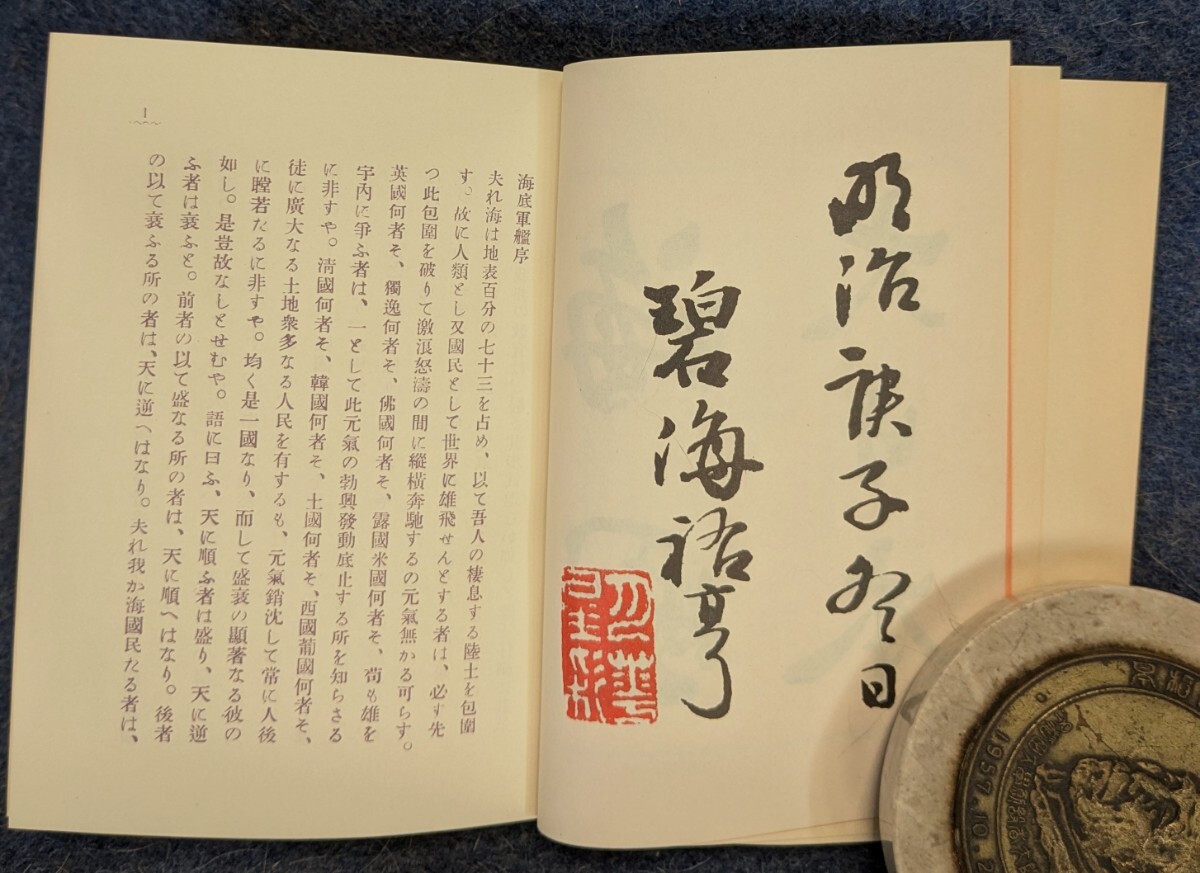 明治庚子冬日
碧海祐亨
海底軍艦序
夫れ海は地表百分の七十三を占め、以て吾人の棲息する陸土を包圍
す。故に人類とし又國民として世界に雄飛せんとする者は、必す先
つ此包圍を破りて激浪怒濤の間に縱橫奔馳するの元氣無かる可らす。
英國何者そ、獨逸何者そ、佛國何者そ、露國米國何者そ、苟も雄を
宇內に爭ふ者は、一として此元氣の勃興發動底止する所を知らさる
に非すや。淸國何者そ、韓國何者そ、土國何者そ、西國葡國何者そ、
徒に廣大なる土地衆多なる人民を有するも、元氣銷沈して常に人後
に瞠若たるに非すや。均く是一國なり、而して盛衰の顯著なる彼の
如し。是豈故なしとせむや。語に曰ふ、天に順ふ者は盛り、天に逆
ふ者は衰ふと。前者の以て盛なる所の者は、天に順へはなり。後者
の以て衰ふる所の者は、天に逆へはなり。夫れ我か海國民たる者は、
1
1957.10.2